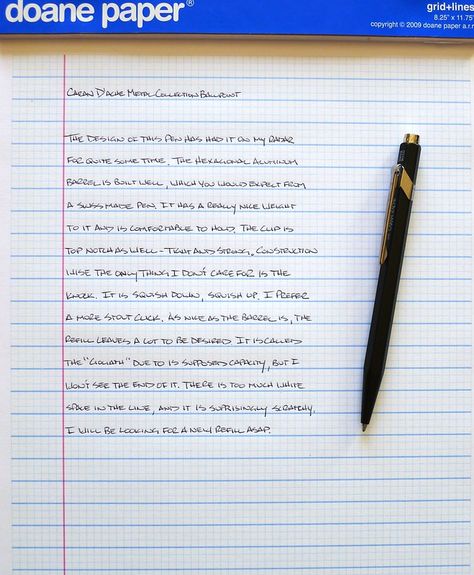 doane paper®
grid+lines
8.25" x 11.75"
copyright © 2009 doane paper a.r.r
CARAN D'ACHE METAL COLLECTION BALLPOINT
THE DESIGN OF THIS PEN HAS HAD IT ON MY RADAR
FOR QUITE SOME TIME. THE HEXAGONAL ALUMINUM
BARREL IS BUILT WELL, WHICH YOU WOULD EXPECT FROM
A SWISS MADE PEN. IT HAS A REALLY NICE WEIGHT
TO IT AND IS COMFORTABLE TO HOLD. THE CLIP IS
TOP NOTCH AS WELL - TIGHT AND STRONG. CONSTRUCTION
WISE THE ONLY THING I DON'T CARE FOR IS THE
KNOCK. IT IS SQUISH DOWN, SQUISH UP. I PREFER
A MORE STOUT CLICK. AS NICE AS THE BARREL IS, THE
REFILL LEAVES A LOT TO BE DESIRED. IT IS CALLED
THE "GOLIATH" DUE TO IS SUPPOSED CAPACITY, BUT I
WON'T SEE THE END OF IT. THERE IS TOO MUCH WHITE
SPACE IN THE LINE, AND IT IS SUPRISINGLY SCRATCHY.
I WILL BE LOOKING FOR A NEW REFILL ASAP.